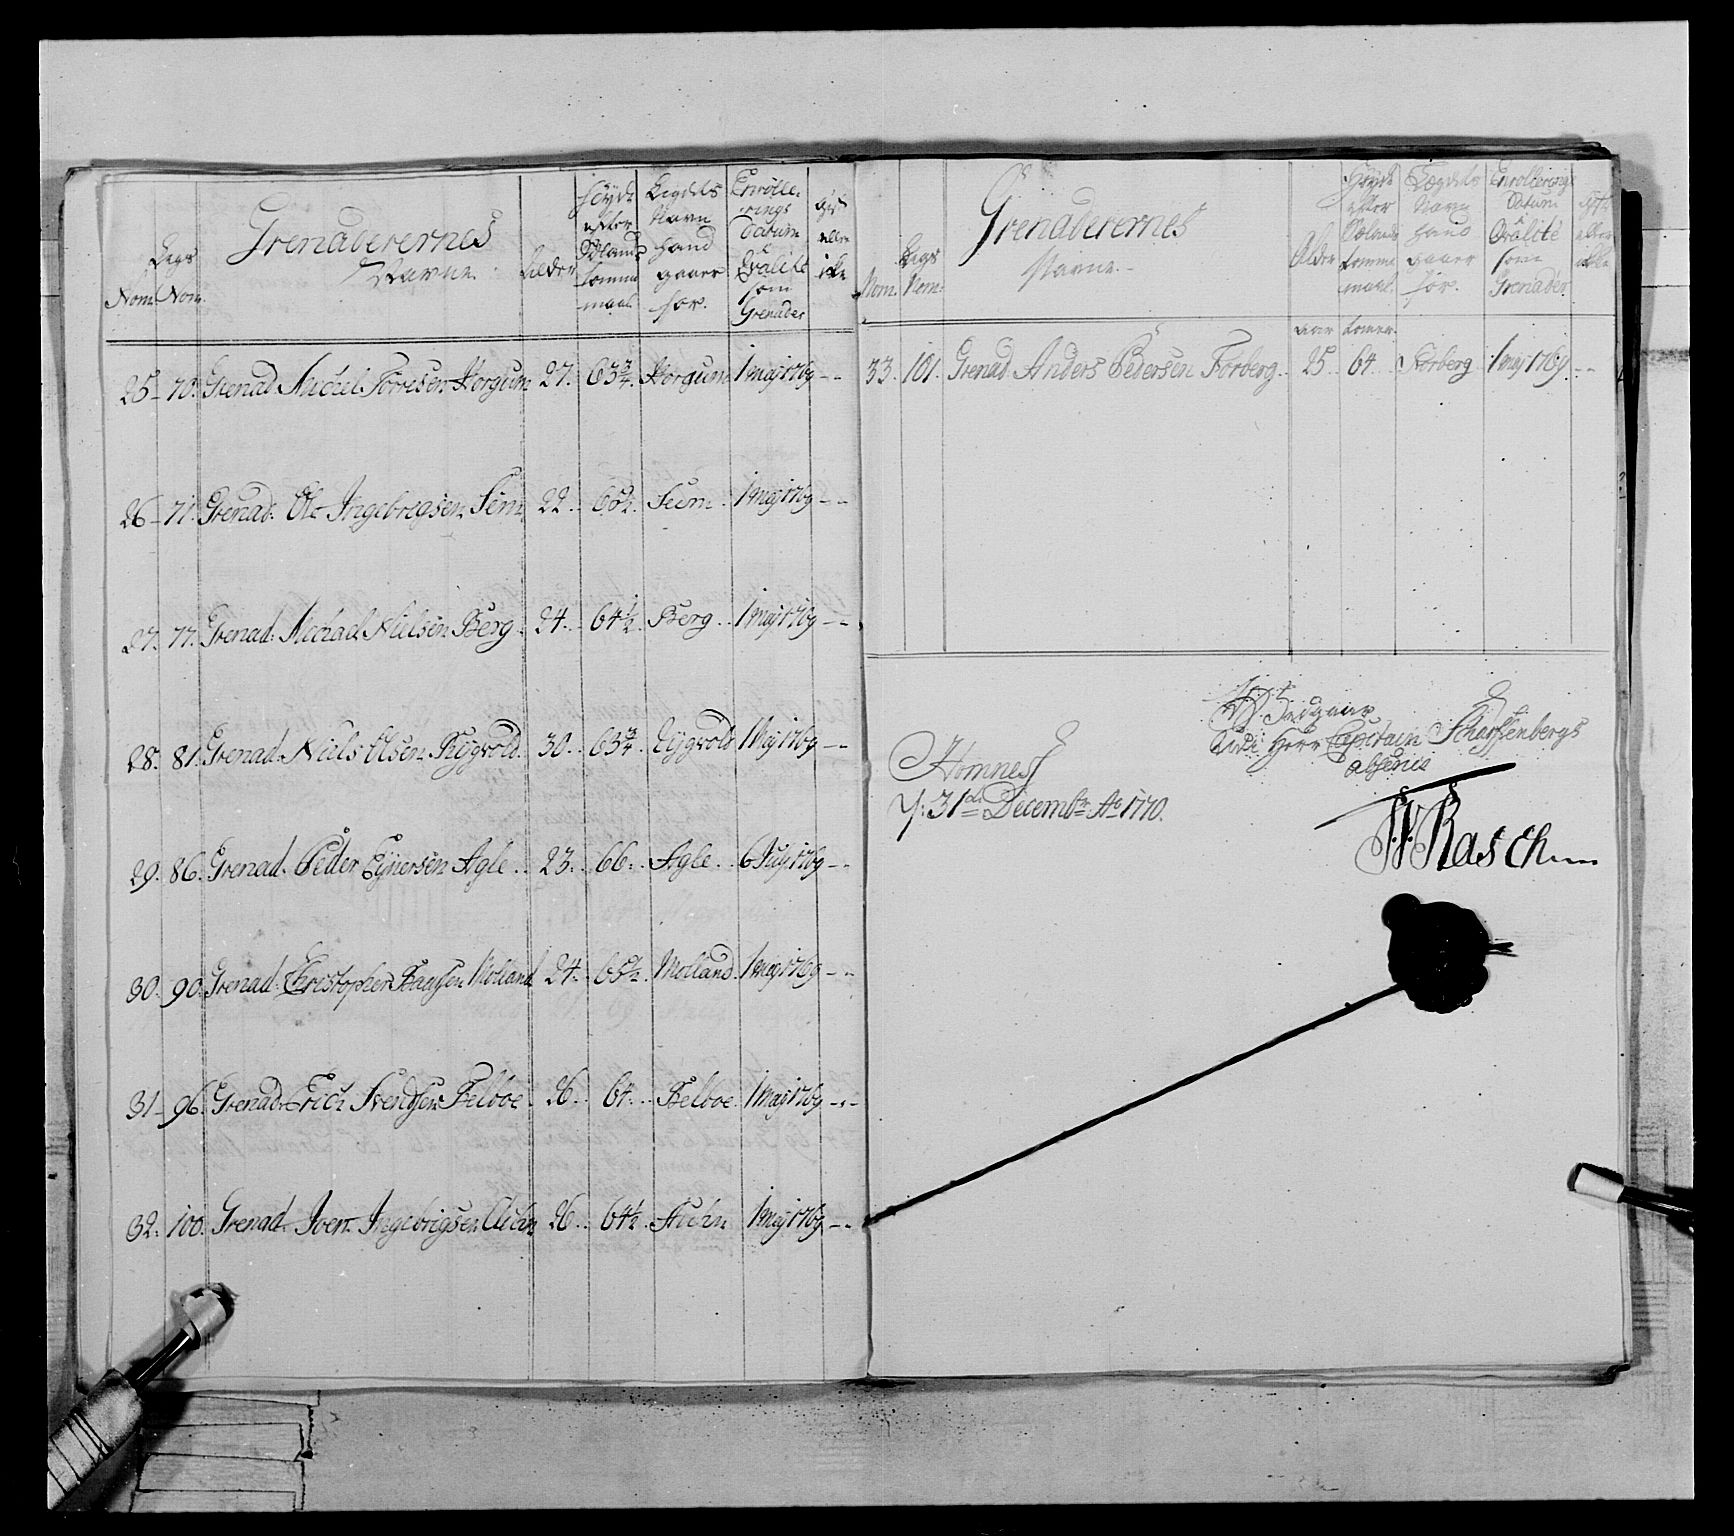 Nom. Legs Nom.
Grenaderernes Navne
Alder
Høyde efter Sølands Tomme maal.
Legdets Navn hand gaaer for.
Enrolle-rings Datum à Qvalité som Grenader
Gift eller ikke
25 - 70. Grenad. Michel Torresen Horgum 27. 63 3/4 Horgum 1 Maj 1769 - -
26 - 71. Grenad. Ole Ingebregsen Sem 22. 65 1/2. Seem. 1 Maj 1769 - -
27. 77. Grenad. Michael Nielsen Berg. 24. 64 1/2 Berg. 1 Maj 1769 - -
28. 81. Grenad. Niels Olsen Rygvold. 30. 63 3/4. Rygvold 1 Maj 1769 - -
29. 86. Grenad. Peder Ejnersen Agle. 23. 66. Agle. 6 1769 - -
30. 90. Grenad. Christopher Molland 24. 65 1/2. Molland. 1 Maj 1769 - -
31 - 96. Grenad. Erich Svendsen Belboe. 26. 64. Belboe. 1 Maj 1769 - -
32. 100. Grenad. Iver Ingebrigsen 26. 64 1/2. 1 Maj 1769 - -
Nom. Legs Nom.
Grenaderernes Navne.
Alder
Høyde efter Sølands Tomme maal.
Lægdets Navn hand gaaer for.
Enrollerings Datum à Qvalité som Grenader
Gift eller ikke
aar tomer.
33. 101. Grenad. Anders Pedersen Forberg. 25. 64. Forberg 1 Maj 1769. - -
Herr Capitain Scharffenbergs
absence
Homnes
31 de Decembr Ao 1770.
Rasch